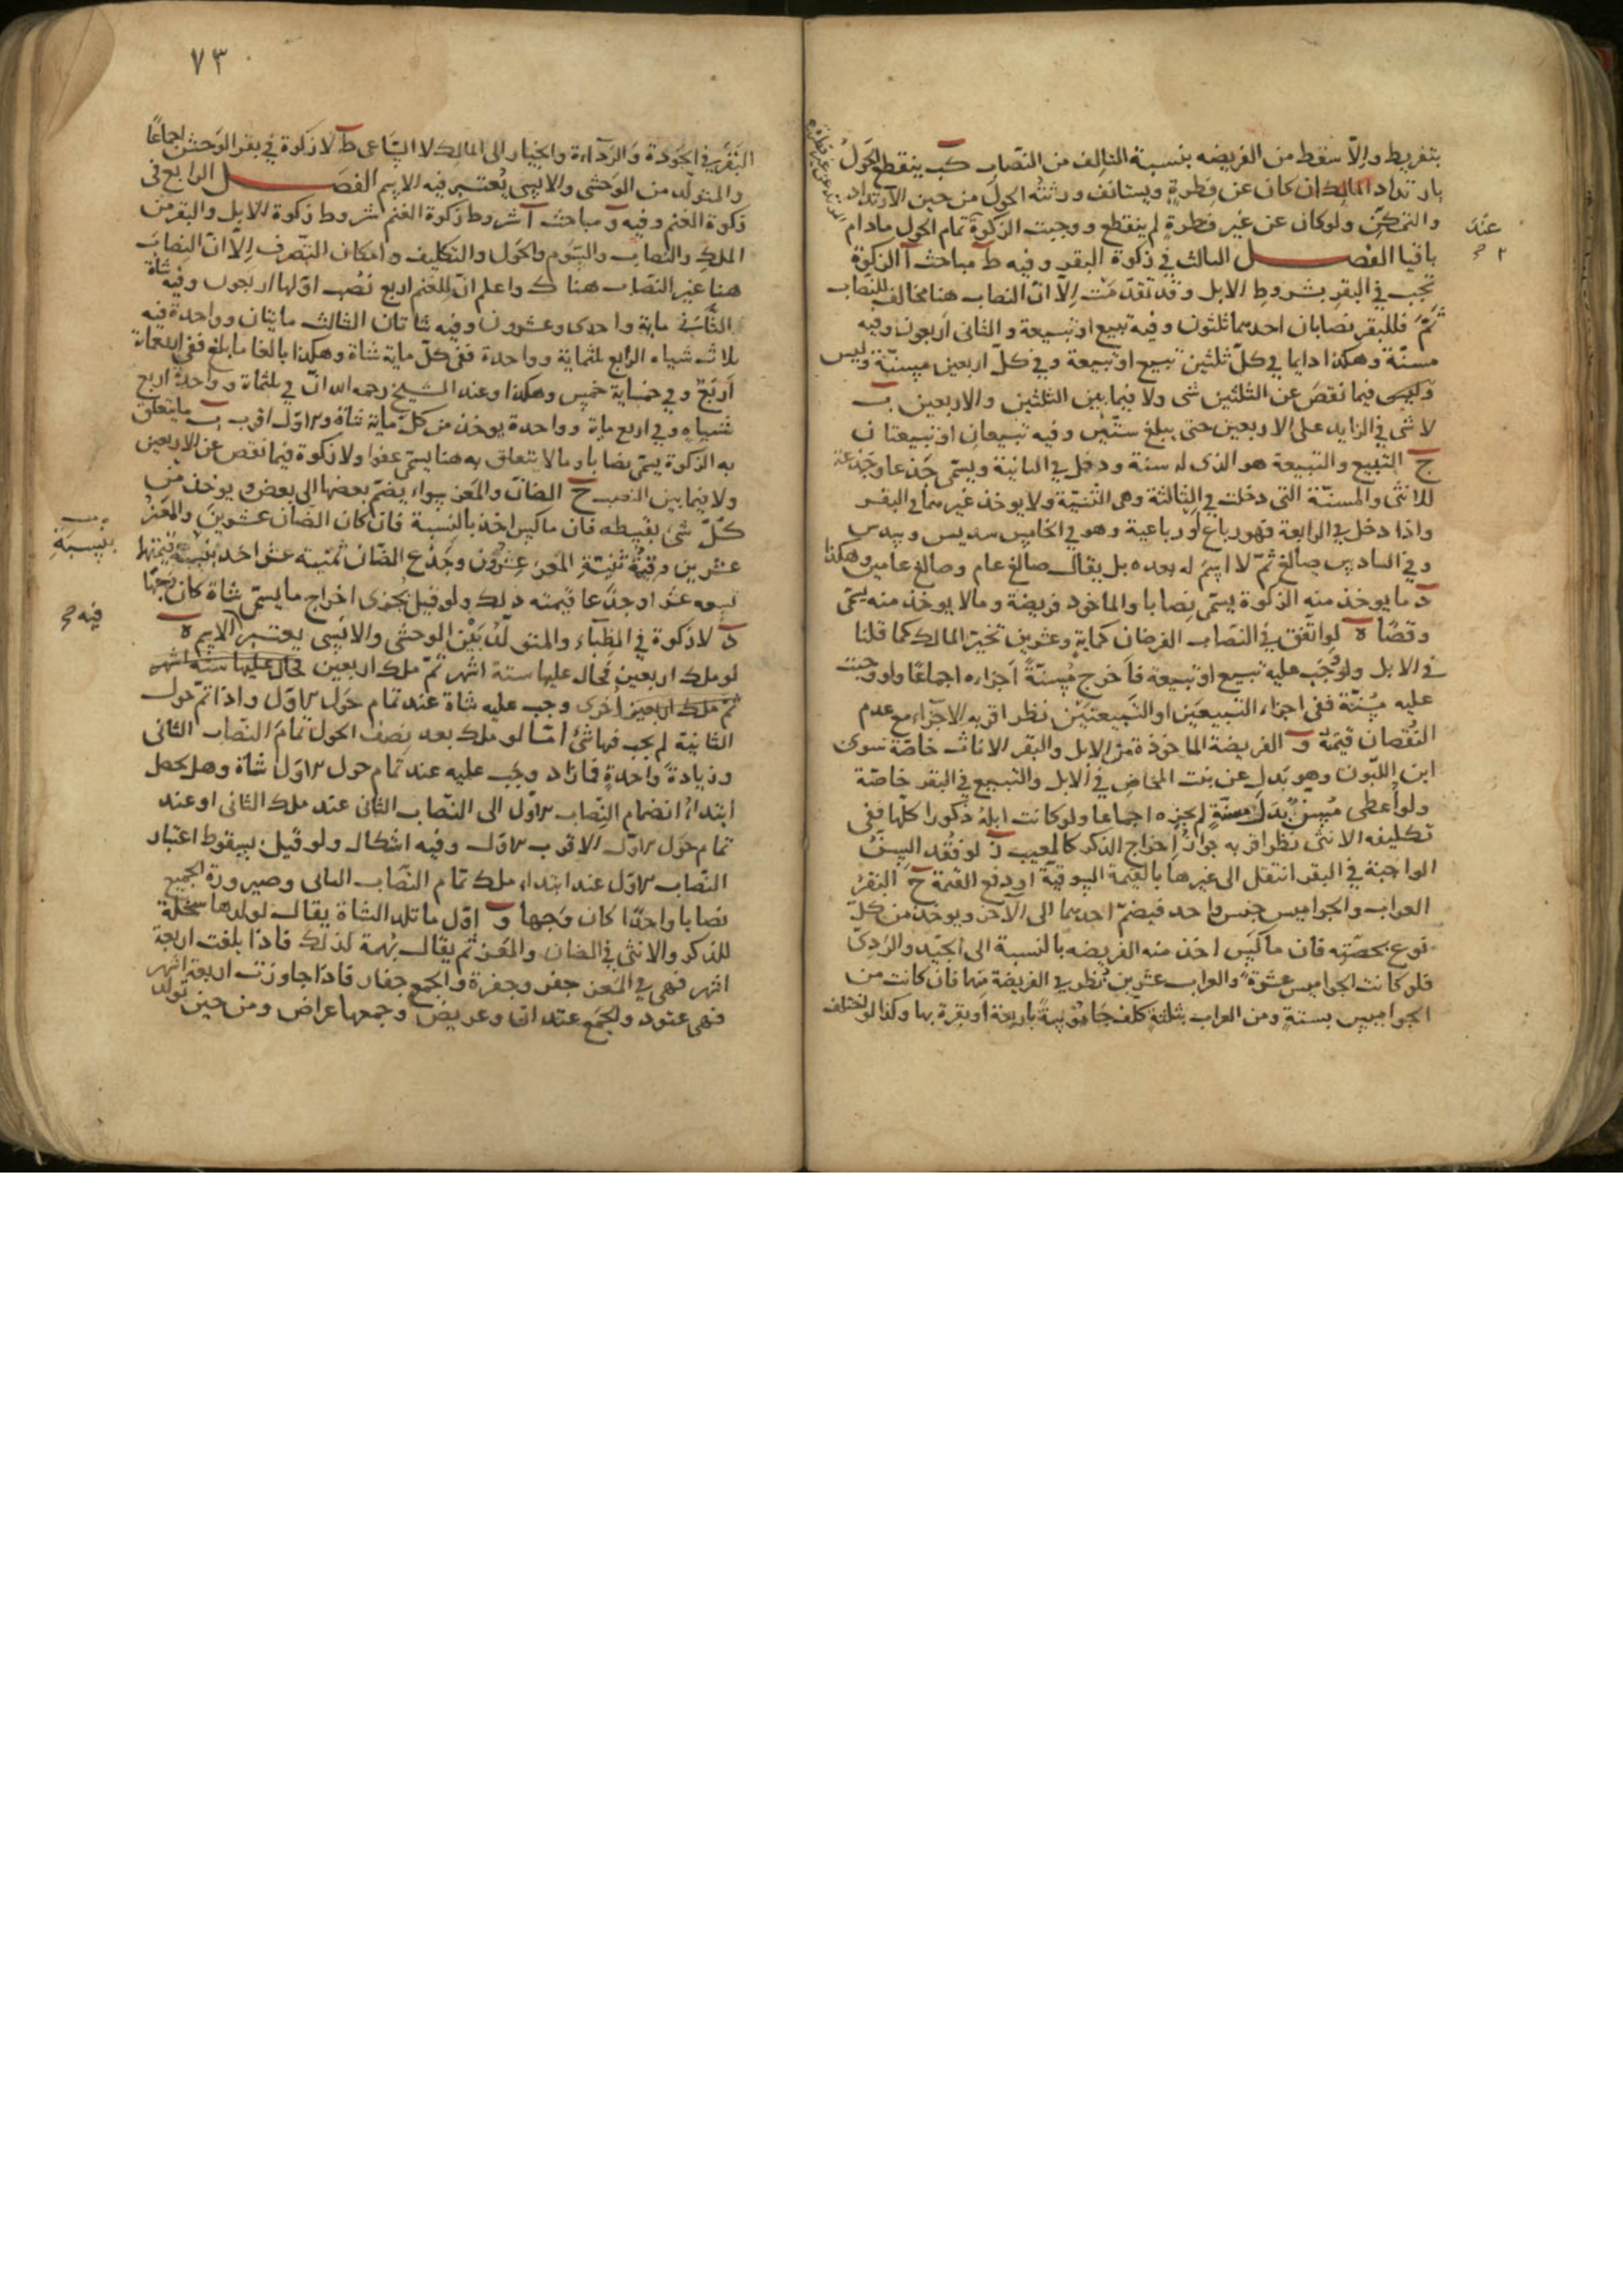 بتفريط والّا سقط من الفريضه بنسبة التالف من النصاب كب ينقطع الحول
بارتداد المالك ان كان عن فطرة ويستانف ورثته الحول من حين الارتداد
والتمكن ولو كان عن غير فطرة لم ينقطع ووجبت الزكوة تمام الحول مادام
عند
باقيا الفصل الثالث في زكوة البقر وفيه ط مباحث آ الزكوة
تجب في البقر بشروط الابل وقد تقدمت الّا ان النصاب هنا مخالف للنصاب
ثم فللبقر نصابان احدهما ثلثون وفيه تبيع او تبيعة والثانى اربعون وفيه
مسنّة وهكذا دايما في كلّ ثلثين تبيع او تبيعة وفي كلّ اربعين مسنّة وليس
وليس فيما نقص عن الثلثين شى ولا فيما بين الثلثين والاربعين ب
لا شى في الزايد على الاربعين حتى يبلغ ستّين وفيه تبيعان او تبيعتان
ج التبيع والتبيعة هو الذى له سنة ودخل في الثانية ويسمّى جذعا وجذعة
للانثى والمسنّة التى دخلت في الثالثة وهى الثنيّة ولا يوخذ غيرهما في البقر
واذا دخل في الرابعة فهو رباع او رباعية وهو في الخامس سديس وسدس
وفي السادس صالغ ثمّ لا اسم له بعده بل يقال صالغ عام وصالغ عامين وهكذا
د ما يوخذ منه الزكوة يسمّى نصابا والماخوذ فريضة وما لا يوخذ منه يسمّى
وقصًا ه لو اتفق في النصاب الفرضان كماية وعشرين تخير المالك كما قلنا
في الابل ولو وجب عليه تبيع او تبيعة فاخرج مسنّة اجزاه اجماعًا ولو وجبت
عليه مسنّة ففى اجزاء التبيعين او التبيعتين نظر اقربه الاجزاء مع عدم
النقصان قيمة و الفريضة الماخوذة من الابل والبقر الاناث خاصّة سوى
ابن اللبون وهو بدل عن بنت المخاض في الابل والتبيع في البقر خاصّة
ولو اعطى مسن بدل مسنّة لم يجزه اجماعا ولو كانت ابله ذكورا كلها ففى
تكليفه الانثى نظر اقربه جواز اخراج الذكر كالمعيب ز لو فقد السن
الواجبة في البقر انتقل الى غيرها بالقيمة السوقية او دفع القيمة ح البقر
العراب والجواميس جنس واحد فيضمّ احدهما الى الآخر ويوخذ من كلّ
نوع بحصّته فان ماكس اخذ منه الفريضه بالنسبة الى الجيّد والردى
فلو كانت الجواميس عشرة والعراب عشرين نظر في الفريضة منها فان كانت من
الجواميس بستة ومن العراب بثلثة كلف جاموسة باربعة او بقرة بها وكذا لو اختلف
٧٣
البقر في الجودة والرّداءة والخيار الى المالك لا الساعى ط لا زكوة في بقر الوحش اجماعًا
والمتولّد من الوحشى والانسى يعتبر فيه الاسم الفصل الرابع فى
زكوة الغنم وفيه و مباحث آ شروط زكوة الغنم شروط زكوة الابل والبقر من
الملك والنصاب والسوم والحول والتكليف وامكان التصرف الّا ان النصاب
هنا غير النصاب هناك واعلم ان للغنم اربع نصب اولها اربعون وفيه شاة
الثانى ماية واحدى وعشرون وفيه شاتان الثالث مايتان وواحدة فيه
ثلاث شياه الرابع ثلثماية وواحدة ففى كلّ ماية شاة وهكذا بالغا ما بلغ ففى اربعماة
اربع وفي خمسماية خمس وهكذا وعند الشيخ رحمه الله ان في ثلثماة وواحدة اربع
شياه وفي اربع ماية وواحدة يوخذ من كلّ ماية شاة والاول اقرب ب ما يتعلق
به الزكوة يسمّى نصابا وما لا يتعلق به هنا يسمّى عفوا ولا زكوة فيما نقص عن الاربعين
ولا فيما بين النصب ح الضان والمعز سواء يضمّ بعضها الى بعض ويوخذ من
كلّ شى بقسطه فان ماكس اخذ بالنسبة فان كان الضان عشرين والمعز
عشرين وقيمة ثنية المعز عشرون وجذع الضان ثمنيته عشر اخذ بنسبة قيمتها
بنسبة
تسعه عشر او جذعا قيمته ذلك ولو قيل يجزى اخراج ما يسمّى شاة كان وجهًا
فيه
د لا زكوة في الظباء والمتولّد بين الوحشى والانسى يعتبر الاسم ه
لو ملك اربعين فحال عليها ستة اشهر ثمّ ملك اربعين فحال عليها ستة اشهر
ثمّ ملك اربعين اخرى وجب عليه شاة عند تمام حول الاول واذا تمّ حول
الثانية لم يجب فيها شى امّا لو ملك بعد نصف الحول تمام النصاب الثانى
وزيادة واحدة فازاد وجب عليه عند تمام حول الاول شاة وهل يحصل
ابتداء انضمام النصاب الاول الى النصاب الثانى عند ملك الثانى او عند
تمام حول الاول الاقرب الاول وفيه اشكال ولو قيل بسقوط اعتبار
النصاب الاول عند ابتداء ملك تمام النصاب الثانى وصيرورة الجميع
نصابا واحدًا كان وجها و اوّل ما تلد الشاة يقال لولدها سخلة
للذكر والانثى في الضان والمعز ثم يقال بهمة لذلك فاذا بلغت اربعة
اشهر فهى في المعز جفر وجفرة والجمع جفار فاذا جاوزت اربعة اشهر
فهى عتود والجمع عتدان وعريض وجمعها عراض ومن حين تولد